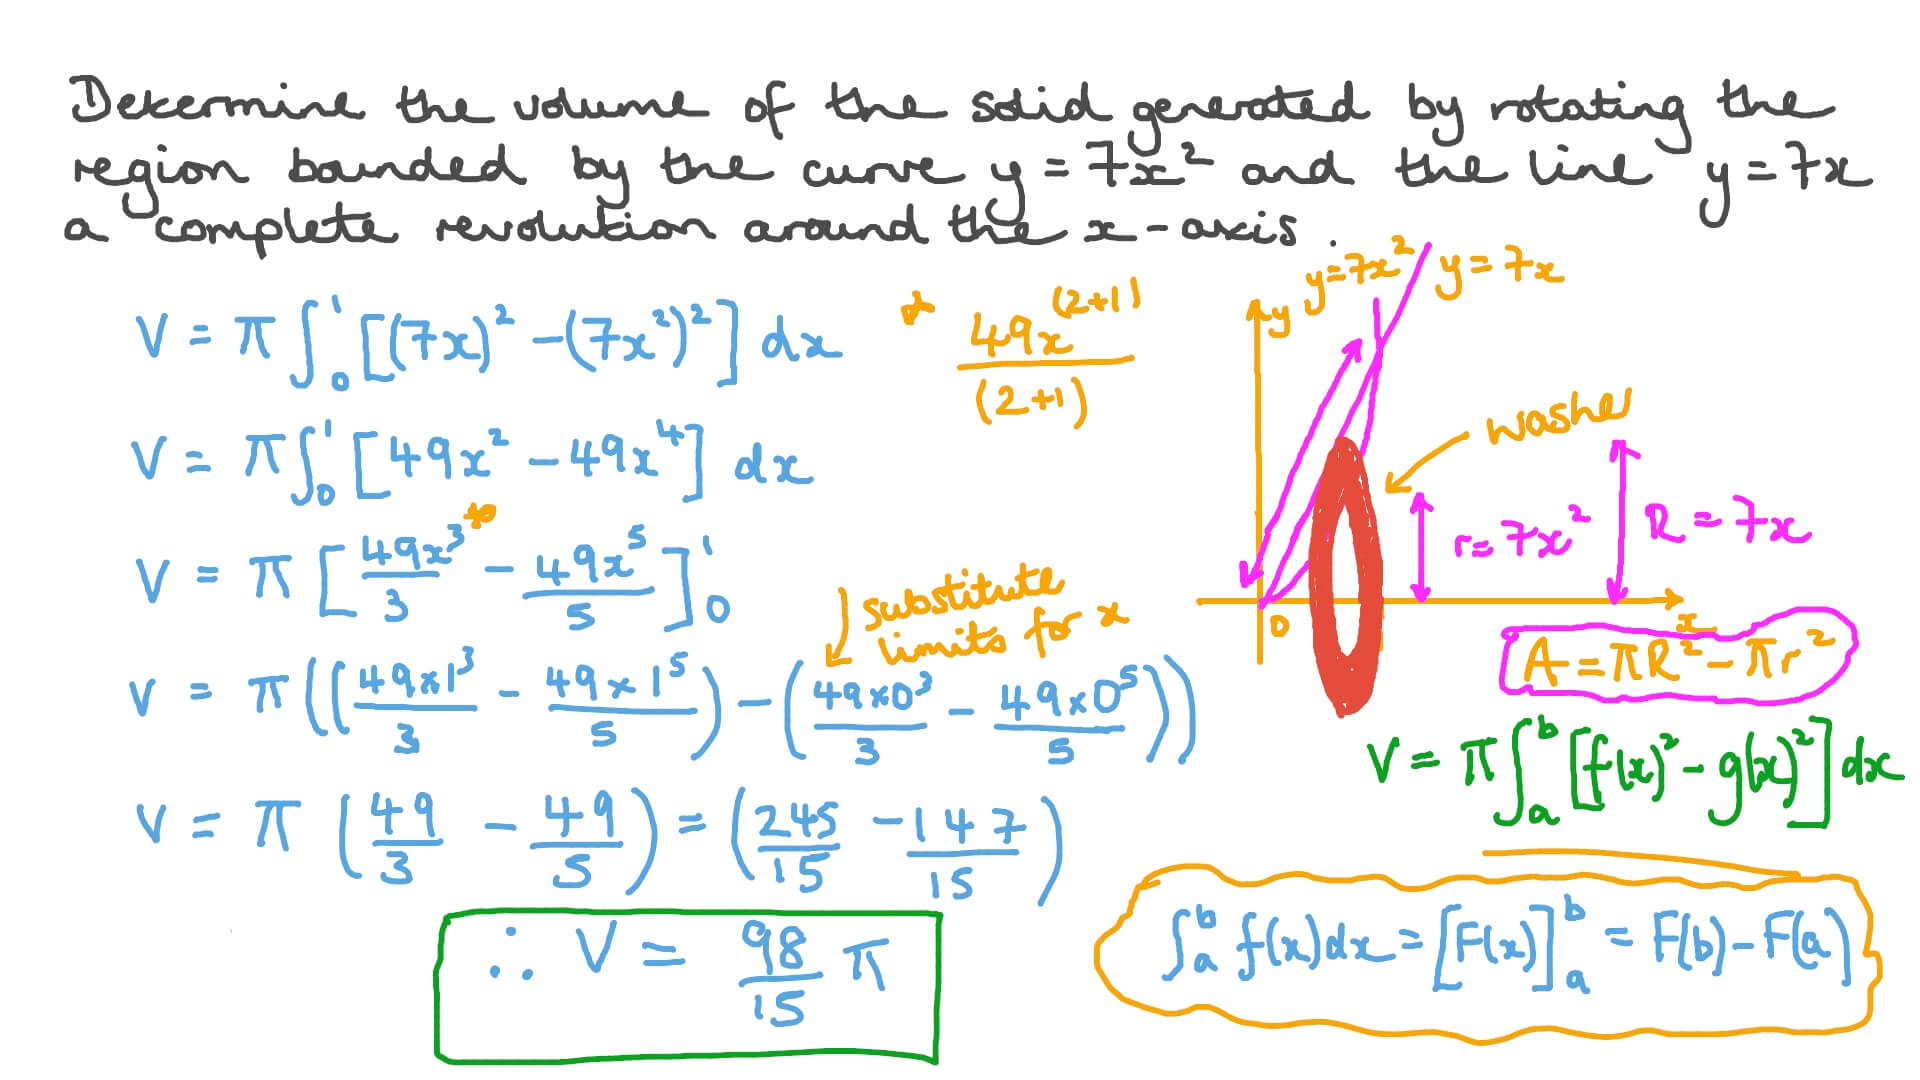 Determine the volume of the solid generated by rotating the
region bounded by the curve y = 7x² and the line y = 7x
a complete revolution around the x-axis.
V = π ∫₀¹ [(7x)² - (7x²)²] dx
* 49x⁽²⁺¹⁾/(2+1)
V = π ∫₀¹ [49x² - 49x⁴] dx
V = π [49x³*/3 - 49x⁵/5]₀¹
substitute
limits for x
V = π((49×1³/3 - 49×1⁵/5) - (49×0³/3 - 49×0⁵/5))
V = π (49/3 - 49/5) = (245/15 - 147/15)
∴ V = 98/15 π
y=7x²
y=7x
y
washer
r=7x²
R=7x
0
x
A = πR² - πr²
V = π ∫ₐᵇ [f(x)² - g(x)²] dx
∫ₐᵇ f(x)dx = [F(x)]ₐᵇ = F(b) - F(a)